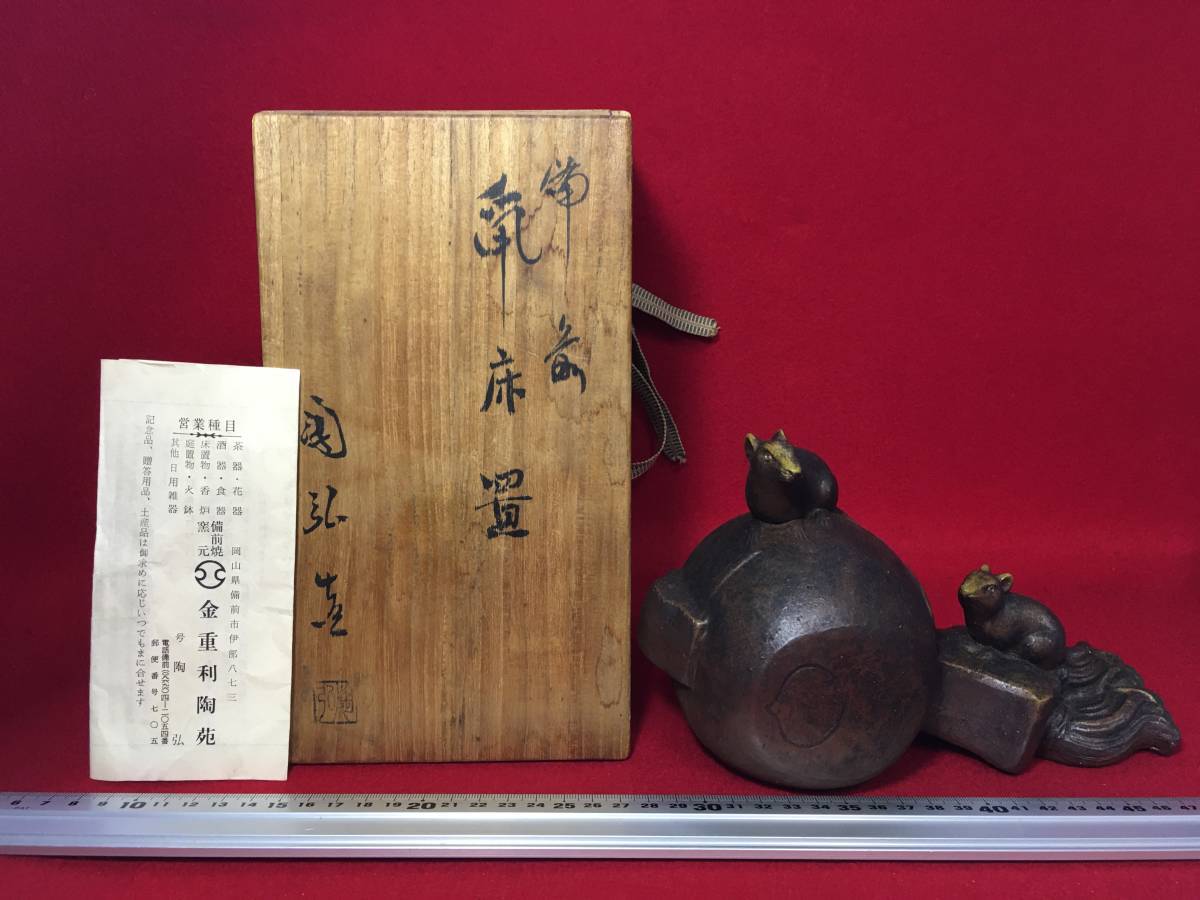 備前
鼠床置
陶弘造
営業種目
茶器・花器
酒器・食器
床置物・香炉
庭置物・火鉢
其他日用雑器
岡山県備前市伊部八七三
備前焼
窯元
金重利陶苑
号陶弘
郵便番号七〇五
記念品、贈答用品、土産品は御求めに応じいつでもまに合せます
6 7 8 9 10 11 12 13 14 15 16 17 18 19 20 21 22 23 24 25 26 27 28 29 30 31 32 33 34 35 36 37 38 39 40 41 42 43 44 45 46 47